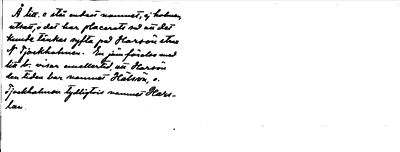 Å litt. c står endast namnet, ej holmen
utsatt, o det har placerats så att det
kunde tänkas syfta på Harsön strax
N Tjockholmen. En jämförelse med
litt b. visar emellertid, att Harsön
den tiden bar namnet Halsön, o.
Tjockholmen tydligtvis namnet Hars-
kar.